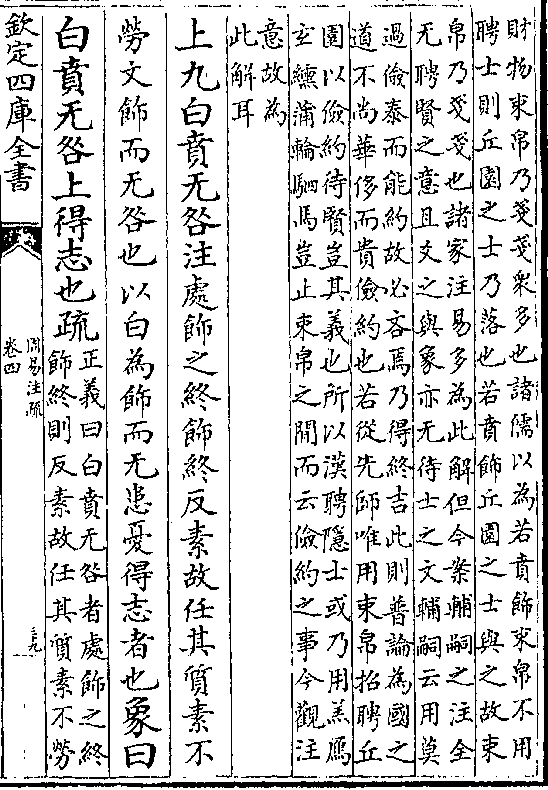 財物束帛乃戔戔衆多也諸儒以為若賁飾束帛不用
聘士則丘園之士乃落也若賁飾丘園之士與之故束
帛乃戔戔也諸家注易多為此解但今案輔嗣之注全
无聘賢之意且爻之與象亦无待士之文輔嗣云用莫
過儉泰而能約故必吝焉乃得終吉此則普論為國之
道不尚華侈而貴儉約也若從先師唯用束帛招聘丘
園以儉約待賢豈其義也所以漢聘隱士或乃用羔鴈
玄纁蒲輪駟馬豈止束帛之間而云儉約之事今觀注
意故為
此解耳
上九白賁无咎注處飾之終飾終反素故任其質素不
勞文飾而无咎也以白為飾而无患憂得志者也象曰
白賁无咎上得志也疏
正義曰白賁无咎者處飾之終
飾終則反素故任其質素不勞
欽定四庫全書
周易注疏
卷四
三九